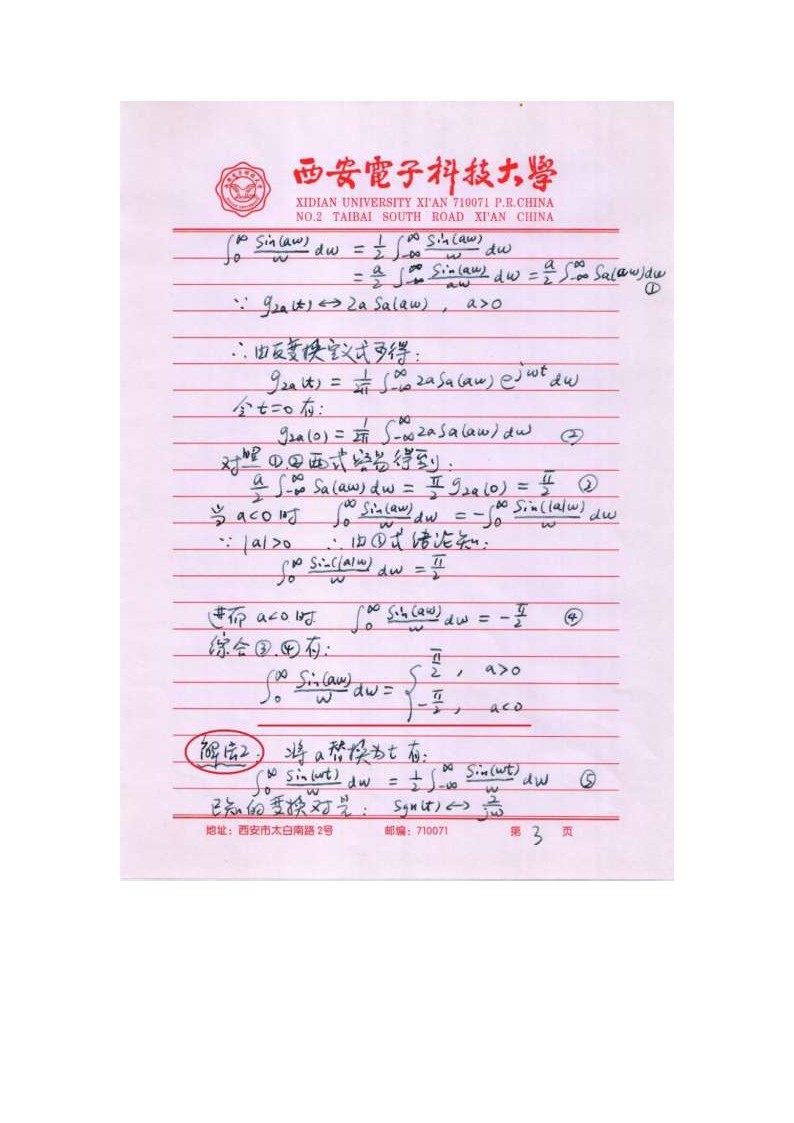 西安電子科技大學
XIDIAN UNIVERSITY XI'AN 710071 P.R.CHINA
NO.2 TAIBAI SOUTH ROAD XI'AN CHINA
∫₀^∞ Sin(aw)/w dw = 1/2 ∫₋∞^∞ Sin(aw)/w dw
= a/2 ∫₋∞^∞ Sin(aw)/aw dw = a/2 ∫₋∞^∞ Sa(aw)dw ①
∵ g₂ₐ(t) ↔ 2a Sa(aw) , a>0
∴ 由反变换定义式可得:
g₂ₐ(t) = 1/2π ∫₋∞^∞ 2aSa(aw) e^jwt dw
令t=0有:
g₂ₐ(0) = 1/2π ∫₋∞^∞ 2aSa(aw) dw ②
对照①,②两式容易得到:
a/2 ∫₋∞^∞ Sa(aw) dw = π/2 g₂ₐ(0) = π/2 ③
当 a<0 时 ∫₀^∞ Sin(aw)/w dw = -∫₀^∞ Sin(|a|w)/w dw
∵ |a|>0 ∴由③式结论知:
∫₀^∞ Sin(|a|w)/w dw = π/2
进而 a<0 时 ∫₀^∞ Sin(aw)/w dw = -π/2 ④
综合③,④有:
∫₀^∞ Sin(aw)/w dw = { π/2 , a>0
-π/2 , a<0
解法2. 将a替换为t有:
∫₀^∞ Sin(wt)/w dw = 1/2 ∫₋∞^∞ Sin(wt)/w dw ⑤
已知的变换对是: Sgn(t) ↔ 2/jw
地址：西安市太白南路2号 邮编：710071 第 3 页